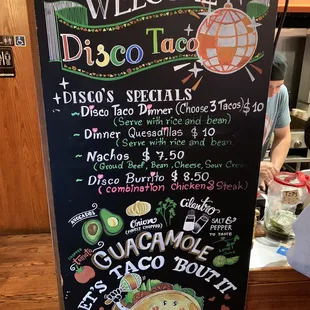 WELCOME
Disco Taco
DISCO'S SPECIALS
~ Disco Taco Dinner (Choose 3 Tacos) $10
(Serve with rice and bean)
~ Dinner Quesadillas $10
(Serve with rice and bean)
~ Nachos $7.50
(Groud Beef, Bean, Cheese, Sour Cream
~ Disco Burrito $8.50
(combination Chicken & Steak)
AVOCADOS
Onion
(FINELY CHOPPED)
Cilantro
SALT &
PEPPER
TO TASTE
TOMATO
GUACAMOLE
LET'S TACO 'BOUT IT